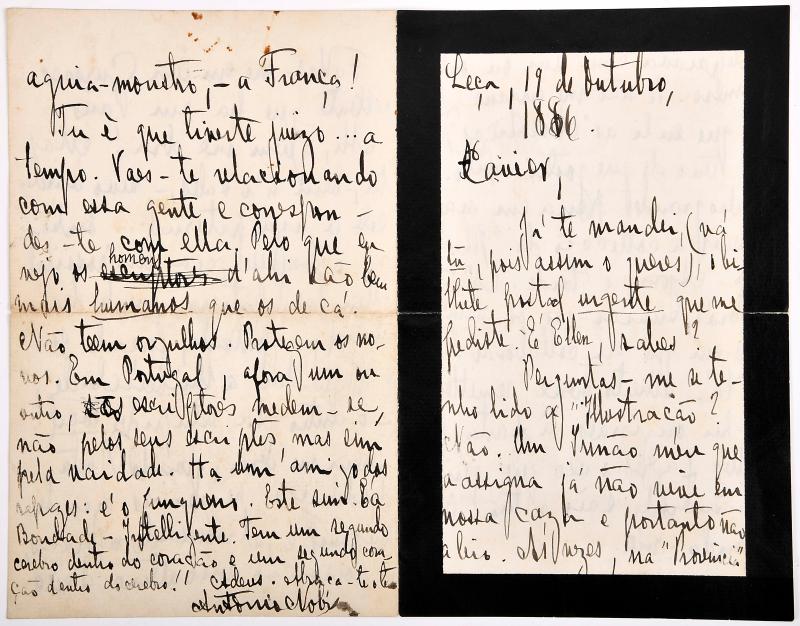 Leça, 19 de Outubro,
1886
Xavier,
Já te mandei (vá
tu, pois assim o queres), o bi-
lhete postal urgente que me
pediste. É Ellen, sabes?
Perguntas-me se te-
nho lido a "Illustração"?
Não. Um Irmão meu que
a assigna já não vive em
nossa caza e portanto não
a leio. Ás vezes, na "Provincia"
aguia-monstro, - a França!
Tu é que tiveste juizo... a
tempo. Vaes-te relacionando
com essa gente e correspon-
des-te com ella. Pelo que eu
vejo, os homens d'ahi são bem
mais humanos que os de cá.
Não teem orgulhos. Protegem os no-
vos. Em Portugal, afora um ou
outro, escriptores medem-se,
não pelos seus escriptos mas sim
pela vaidade. Ha um amigo dos
rapazes: é o Junqueiro. Este sim. É a
Bondade-Intelligente. Tem um segundo
cerebro dentro do coração e um segundo cora-
ção dentro do cerebro!! Adeus. Abraça-te o te
Antonio Nobre